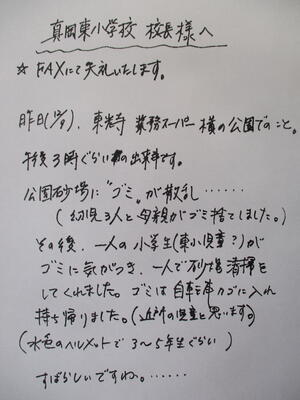 真岡東小学校 校長様へ
☆ FAXにて失礼いたします。
昨日(12/8)、東光寺 業務スーパー横の公園でのこと。
午後3時ぐらいの出来事です。
公園砂場に"ゴミ"が散乱……
(幼児3人と母親がゴミ捨てしました。)
その後、一人の小学生(東小児童?)が
ゴミに気がつき、一人で砂場清掃を
してくれました。ゴミは自転車カゴに入れ
持ち帰りました。(近所の児童と思います。)
(水色のヘルメットで 3〜5年生ぐらい)
すばらしいですね。……